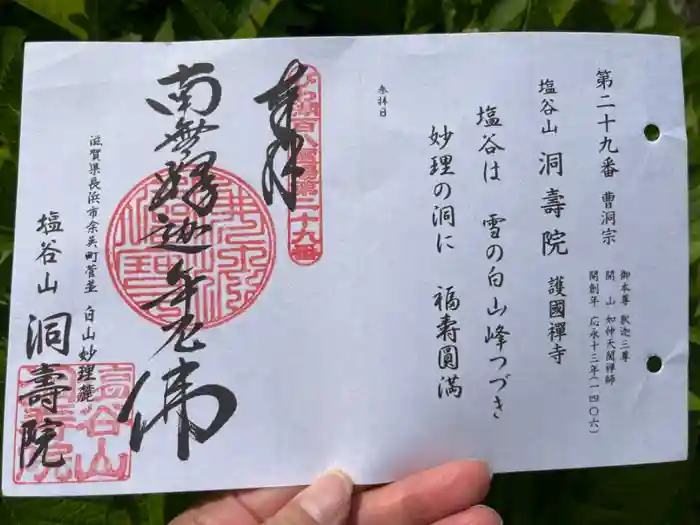 第二十九番 曹洞宗
御本尊 釈迦三尊
開山 如仲天誾禅師
開創年 応永十三年(一四〇六)
塩谷山 洞壽院 護國禪寺
塩谷は 雪の白山峰つづき
妙理の洞に 福壽圓満
参拝日
奉拝
びわ湖百八霊場第二十九番
南無釋迦牟尼佛
滋賀県長浜市余呉町菅並 白山妙理麓
塩谷山 洞壽院
塩谷山
洞壽院